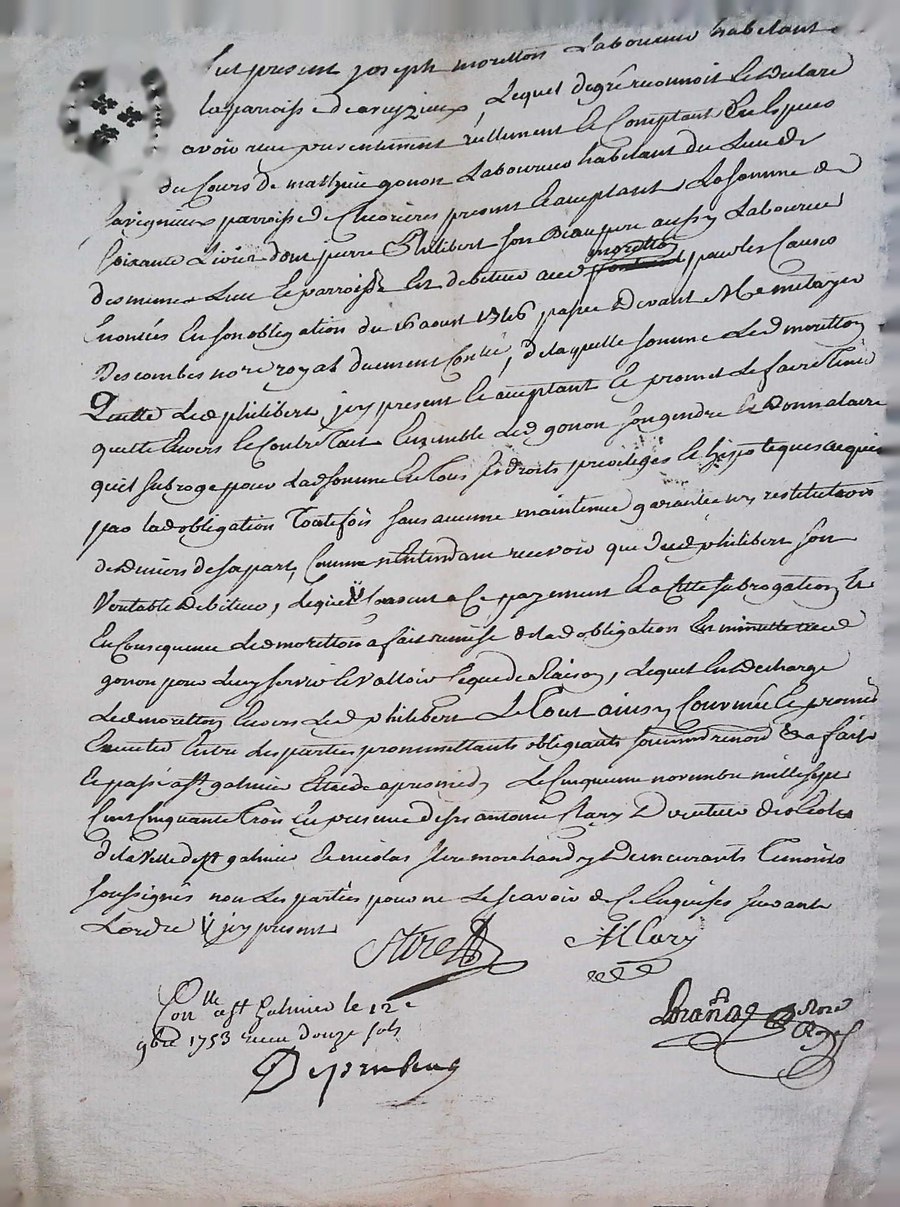 fut present joseph moretton Laboureur habitant
la parroisse d'aveyzieux, Lequel de gré reconnoit et declare
avoir reçu presentement réellement et Comptant En Especes
du Cours de mathieu gonon Laboureur habitant du Lieu de
parroisse de Chevrières present et acceptant La somme de
soixante Livres dont pierre Philibert son Beaupere aussy Laboureur
des mesmes Lieu et parroisse Est debiteur aud moretton pour les Causes
Enoncées En son obligation du 16 aout 1746 passée Devant Me metayer
Descombes nore royal duement Conllé, de laquelle somme Led moretton
Quitte Led philibert jcy present et acceptant et promet Le faire Tenir
quitte Envers et Contre Tous Ensemble Led gonon son gendre et donnataire
qu'il subroge pour Lad somme En Tous ses droits privileges et hipoteques acquis
par lad obligation Toutefois sans aucune maintenue garantie ny restitution
de deniers de sa part, Comme n'Entendant recevoir que dud philibert son
Veritable debiteur, Lequel Consent a Ce payement et a Cette subrogation, Et
En Consequence Led moretton a fait remise de lad obligation aud
gonon pour Luy servir et valloir Ce que de Raison, Lequel En decharge
Led moretton Envers Led philibert Le Tout ainsy Convenu et promis
Executer Entre Les parties promettants obligeants soumd renond &a fait
Et passé a st galmier Etude apres midy Le Cinquieme novembre mil sept
Cent Cinquante Trois En presence de sr antoine Clary Directeur des Ecoles
de la Ville de st galmier et nicolas hire marchand y Demeurants Temoins
soussignés non Les parties pour ne Le scavoir de Ce Enquises suivant
L'ordre jcy present
A Clary
Conllé a st Galmier le 12e
9bre 1753 reçu douze sols
nore
Royal